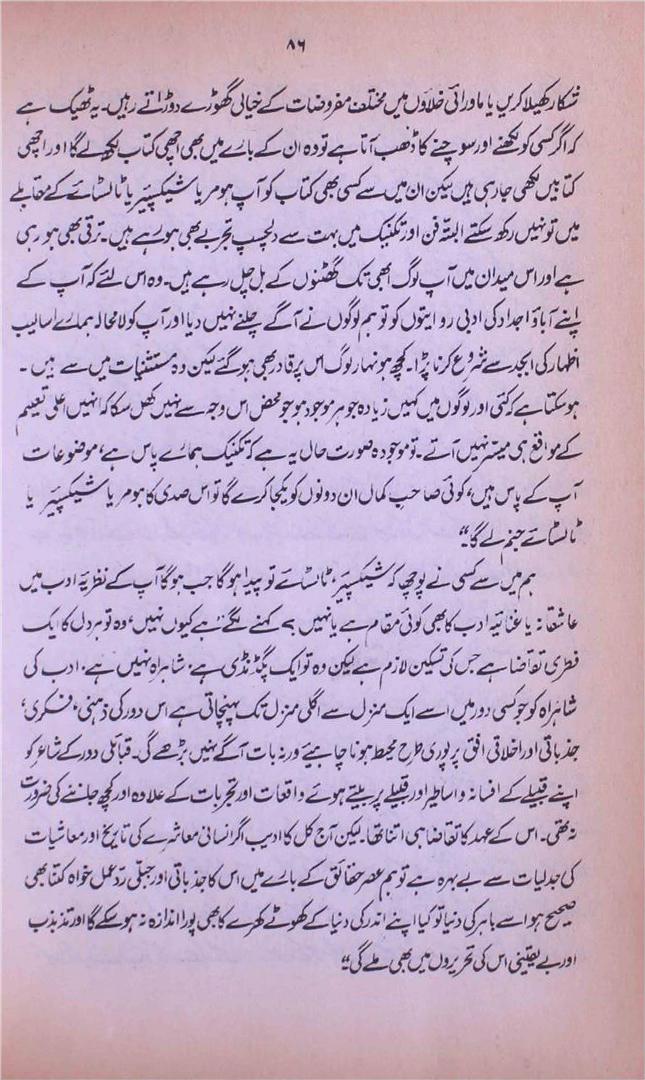 ۸۶
شکار کھیلا کریں یا ماورائی خلاؤں میں مختلف مفروضات کے خیالی گھوڑے دوڑاتے رہیں۔ یہ ٹھیک ہے
کہ اگر کسی کو لکھنے اور سوچنے کا ڈھب آتا ہے تو وہ ان کے بارے میں بھی اچھی کتاب لکھ لے گا اور اچھی
کتابیں لکھی جا رہی ہیں لیکن ان میں سے کسی بھی کتاب کو آپ ہومر یا شیکسپیئر یا ٹالسٹائے کے مقابلے
میں تو نہیں رکھ سکتے البتہ فن اور تکنیک میں بہت سے دلچسپ تجربے بھی ہو رہے ہیں۔ ترقی بھی ہو رہی
ہے اور اس میدان میں آپ لوگ ابھی تک گھٹنوں کے بل چل رہے ہیں۔ وہ اس لئے کہ آپ کے
اپنے آباؤ اجداد کی ادبی روایتوں کو تو ہم لوگوں نے آگے چلنے نہیں دیا اور آپ کو لامحالہ ہمارے اسالیب
اظہار کی ابجد سے شروع کرنا پڑا۔ کچھ ہونہار لوگ اس پر قادر بھی ہو گئے لیکن وہ مستثنیات میں سے ہیں۔
ہو سکتا ہے کہ کئی اور لوگوں میں کہیں زیادہ جوہر موجود ہو جو محض اس وجہ سے نہیں کھل سکا کہ انہیں اعلیٰ تعلیم
کے مواقع ہی میسر نہیں آتے۔ تو موجودہ صورت حال یہ ہے کہ تکنیک ہمارے پاس ہے، موضوعات
آپ کے پاس ہیں، کوئی صاحبِ کمال ان دونوں کو یکجا کرے گا تو اس صدی کا ہومر یا شیکسپیئر یا
ٹالسٹائے جنم لے گا“
ہم میں سے کسی نے پوچھا کہ شیکسپیئر، ٹالسٹائے تو پیدا ہو گا جب ہو گا آپ کے نظریۂ ادب میں
عاشقانہ یا غنائیہ ادب کا بھی کوئی مقام ہے یا نہیں؟ کہنے لگے ”ہے کیوں نہیں، وہ تو ہر دل کا ایک
فطری تقاضا ہے جس کی تسکین لازم ہے لیکن وہ تو ایک پگڈنڈی ہے، شاہراہ نہیں ہے، ادب کی
شاہراہ کو جو کسی دور میں اسے ایک منزل سے اگلی منزل تک پہنچاتی ہے اس دور کی ذہنی، فکری،
جذباتی اور اخلاقی افق پر پوری طرح محیط ہونا چاہیئے ورنہ بات آگے نہیں بڑھے گی۔ قبائلی دور کے شاعر کو
اپنے قبیلے کے افسانہ و اساطیر اور قبیلے پر بیتے ہوئے واقعات اور تجربات کے علاوہ اور کچھ جاننے کی ضرورت
نہ تھی۔ اس کے عہد کا تقاضا ہی اتنا تھا۔ لیکن آج کل کا ادیب اگر انسانی معاشرے کی تاریخ اور معاشیات
کی جدلیات سے بے بہرہ ہے تو ہم عصر حقائق کے بارے میں اس کا جذباتی اور جبلی ردِ عمل خواہ کتنا بھی
صحیح ہو اسے باہر کی دنیا تو کیا اپنے اندر کی دنیا کے کھوٹے کھرے کا بھی پورا اندازہ نہ ہو سکے گا اور تذبذب
اور بے یقینی اس کی تحریروں میں بھی ملے گی“